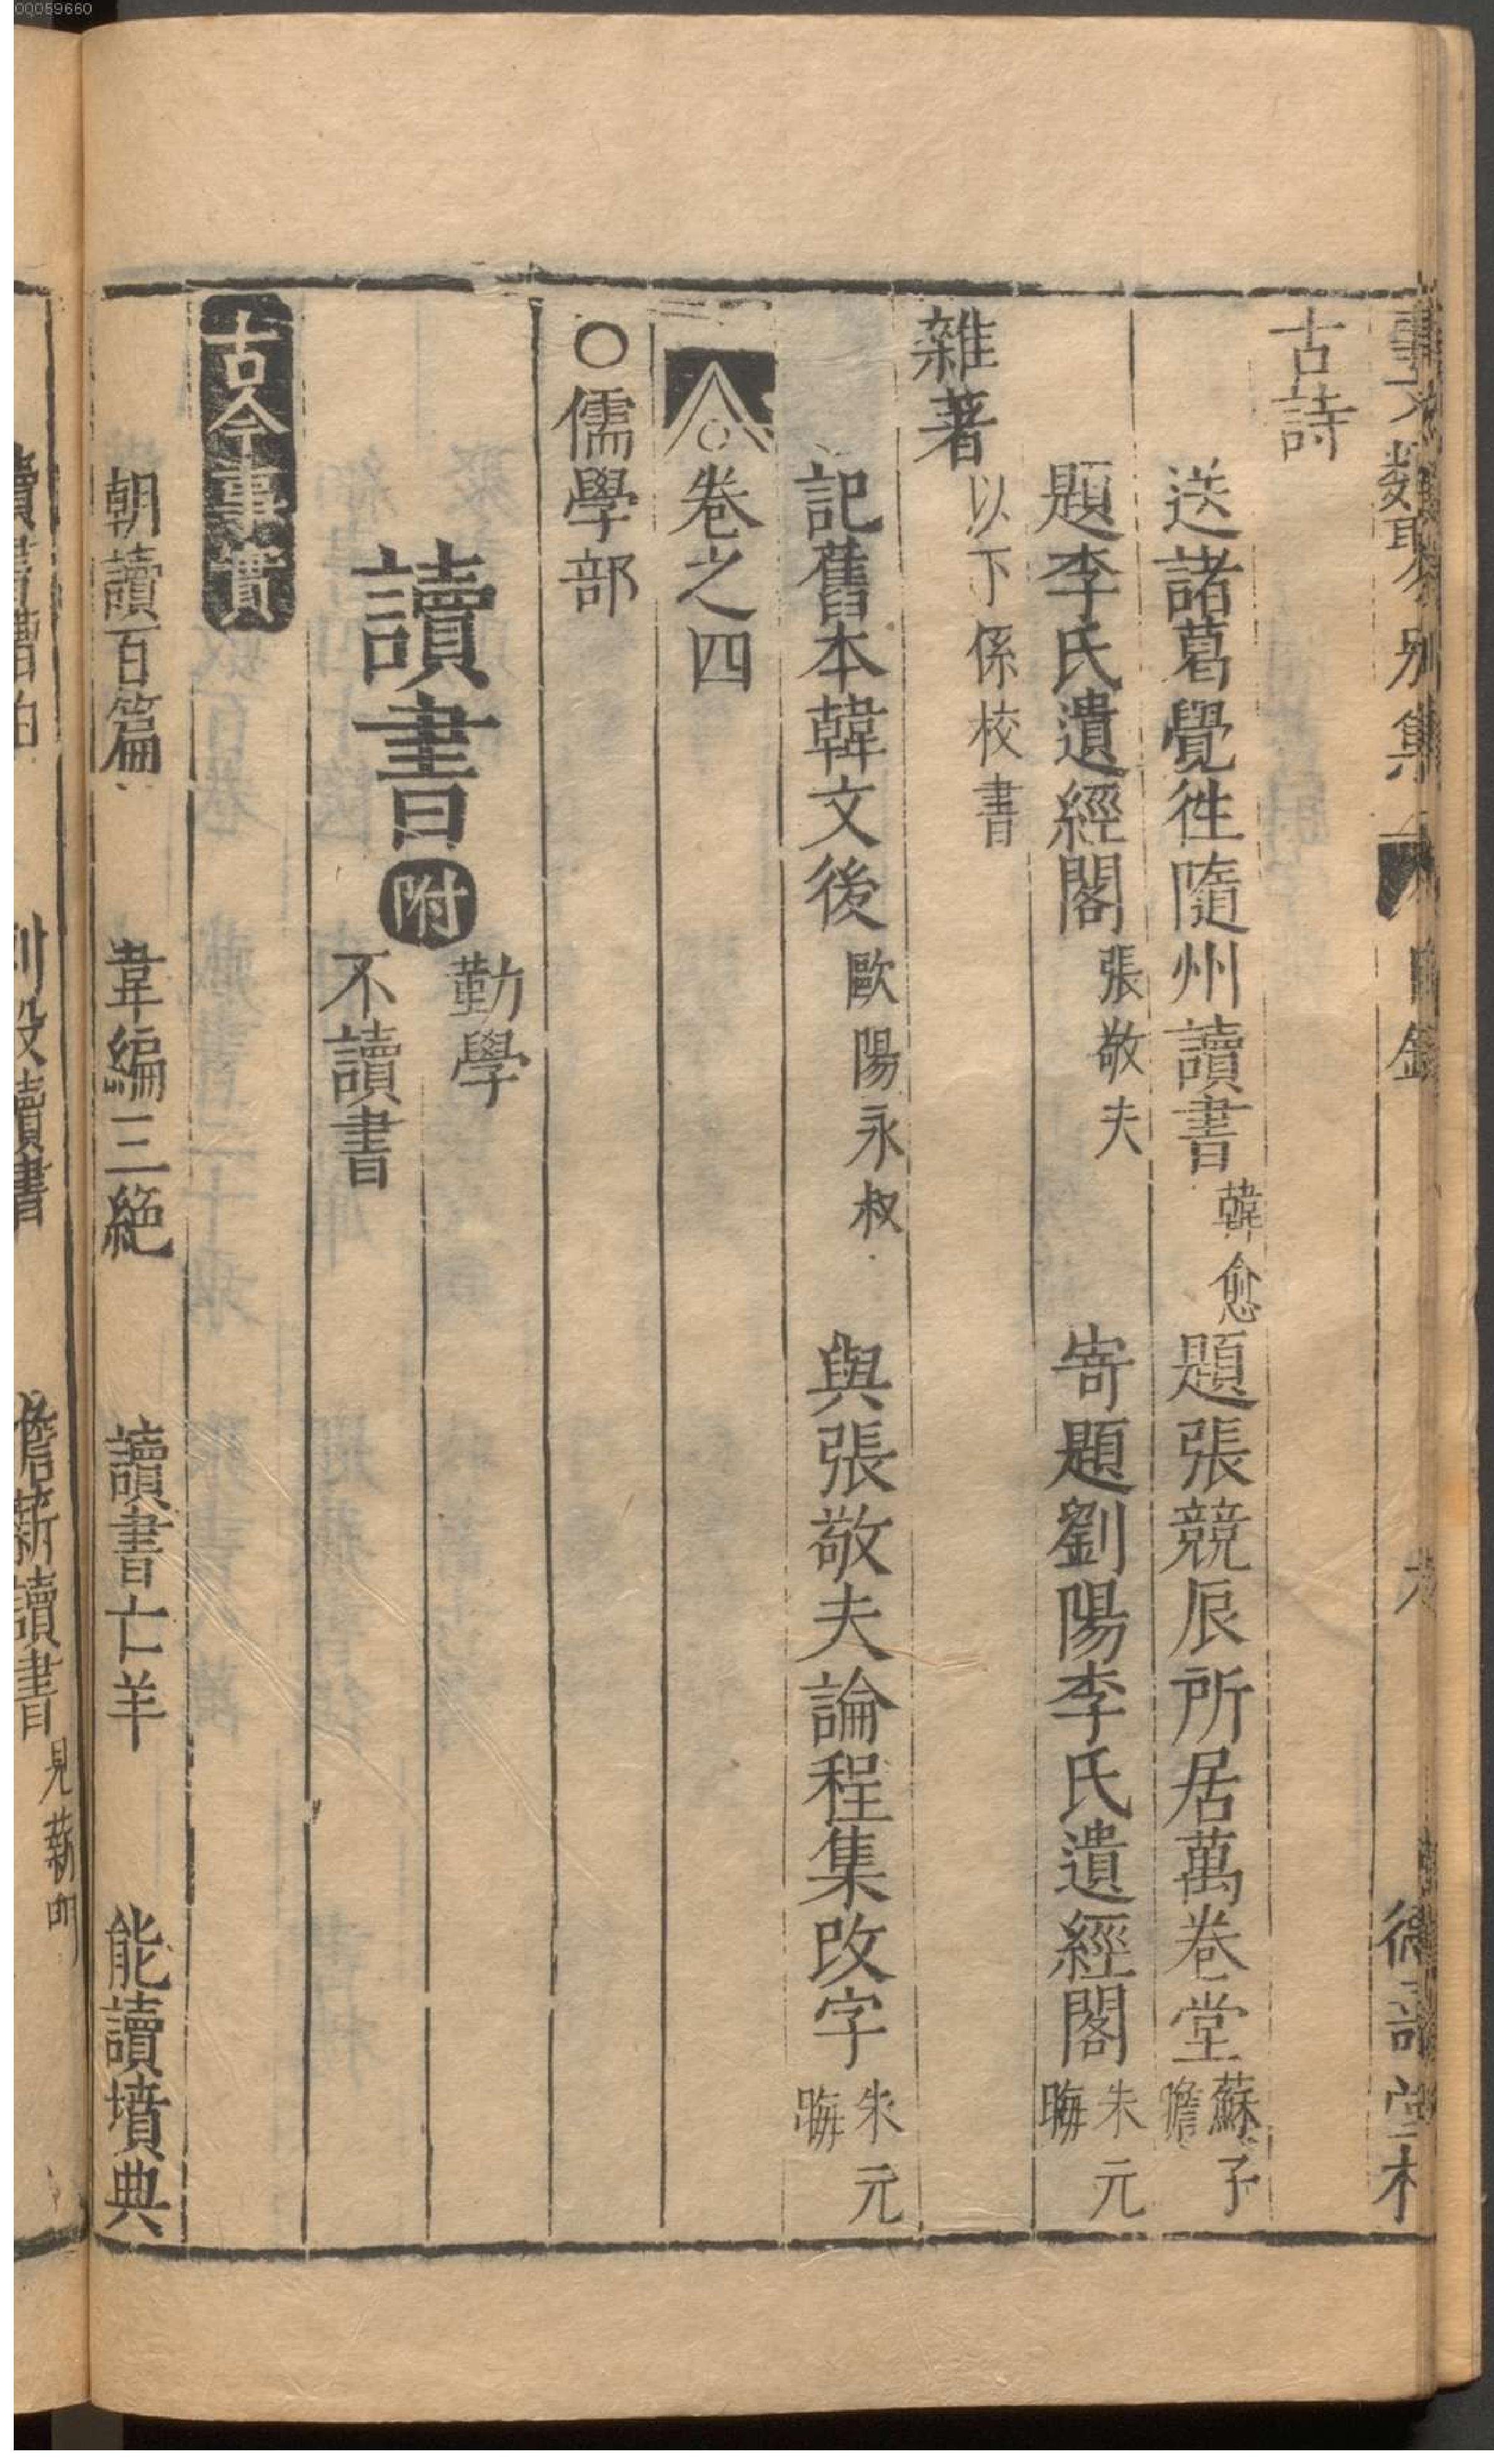 00059660
古詩
送諸葛覺徃隨州讀書 韓愈 題張競辰所居萬卷堂 蘇子瞻
題李氏遺經閣 張敬夫 寄題劉陽李氏遺經閣 朱元晦
雜著 以下係校書
記舊本韓文後 歐陽永叔 與張敬夫論程集改字 朱元晦
卷之四
○儒學部
讀書 附 勤學 不讀書
古今事實
朝讀百篇 韋編三絶 讀書亡羊 能讀墳典
讀書 擔薪讀書 見薪